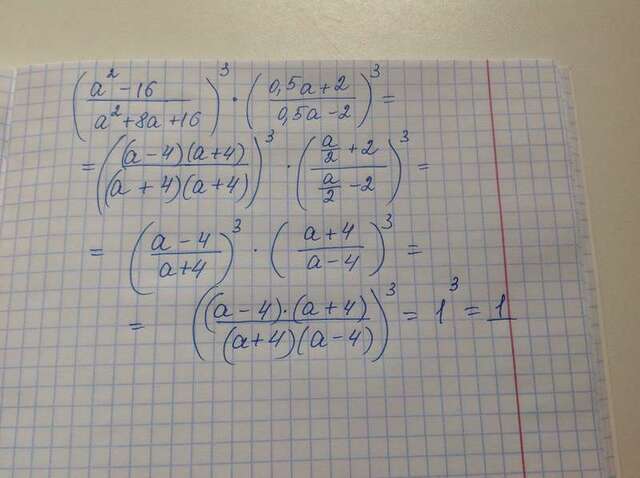 (a² - 16 / a² + 8a + 16)³ · (0,5a + 2 / 0,5a - 2)³ =
= ((a - 4)(a + 4) / (a + 4)(a + 4))³ · (a/2 + 2 / a/2 - 2)³ =
= (a - 4 / a + 4)³ · (a + 4 / a - 4)³ =
= ((a - 4) · (a + 4) / (a + 4)(a - 4))³ = 1³ = 1